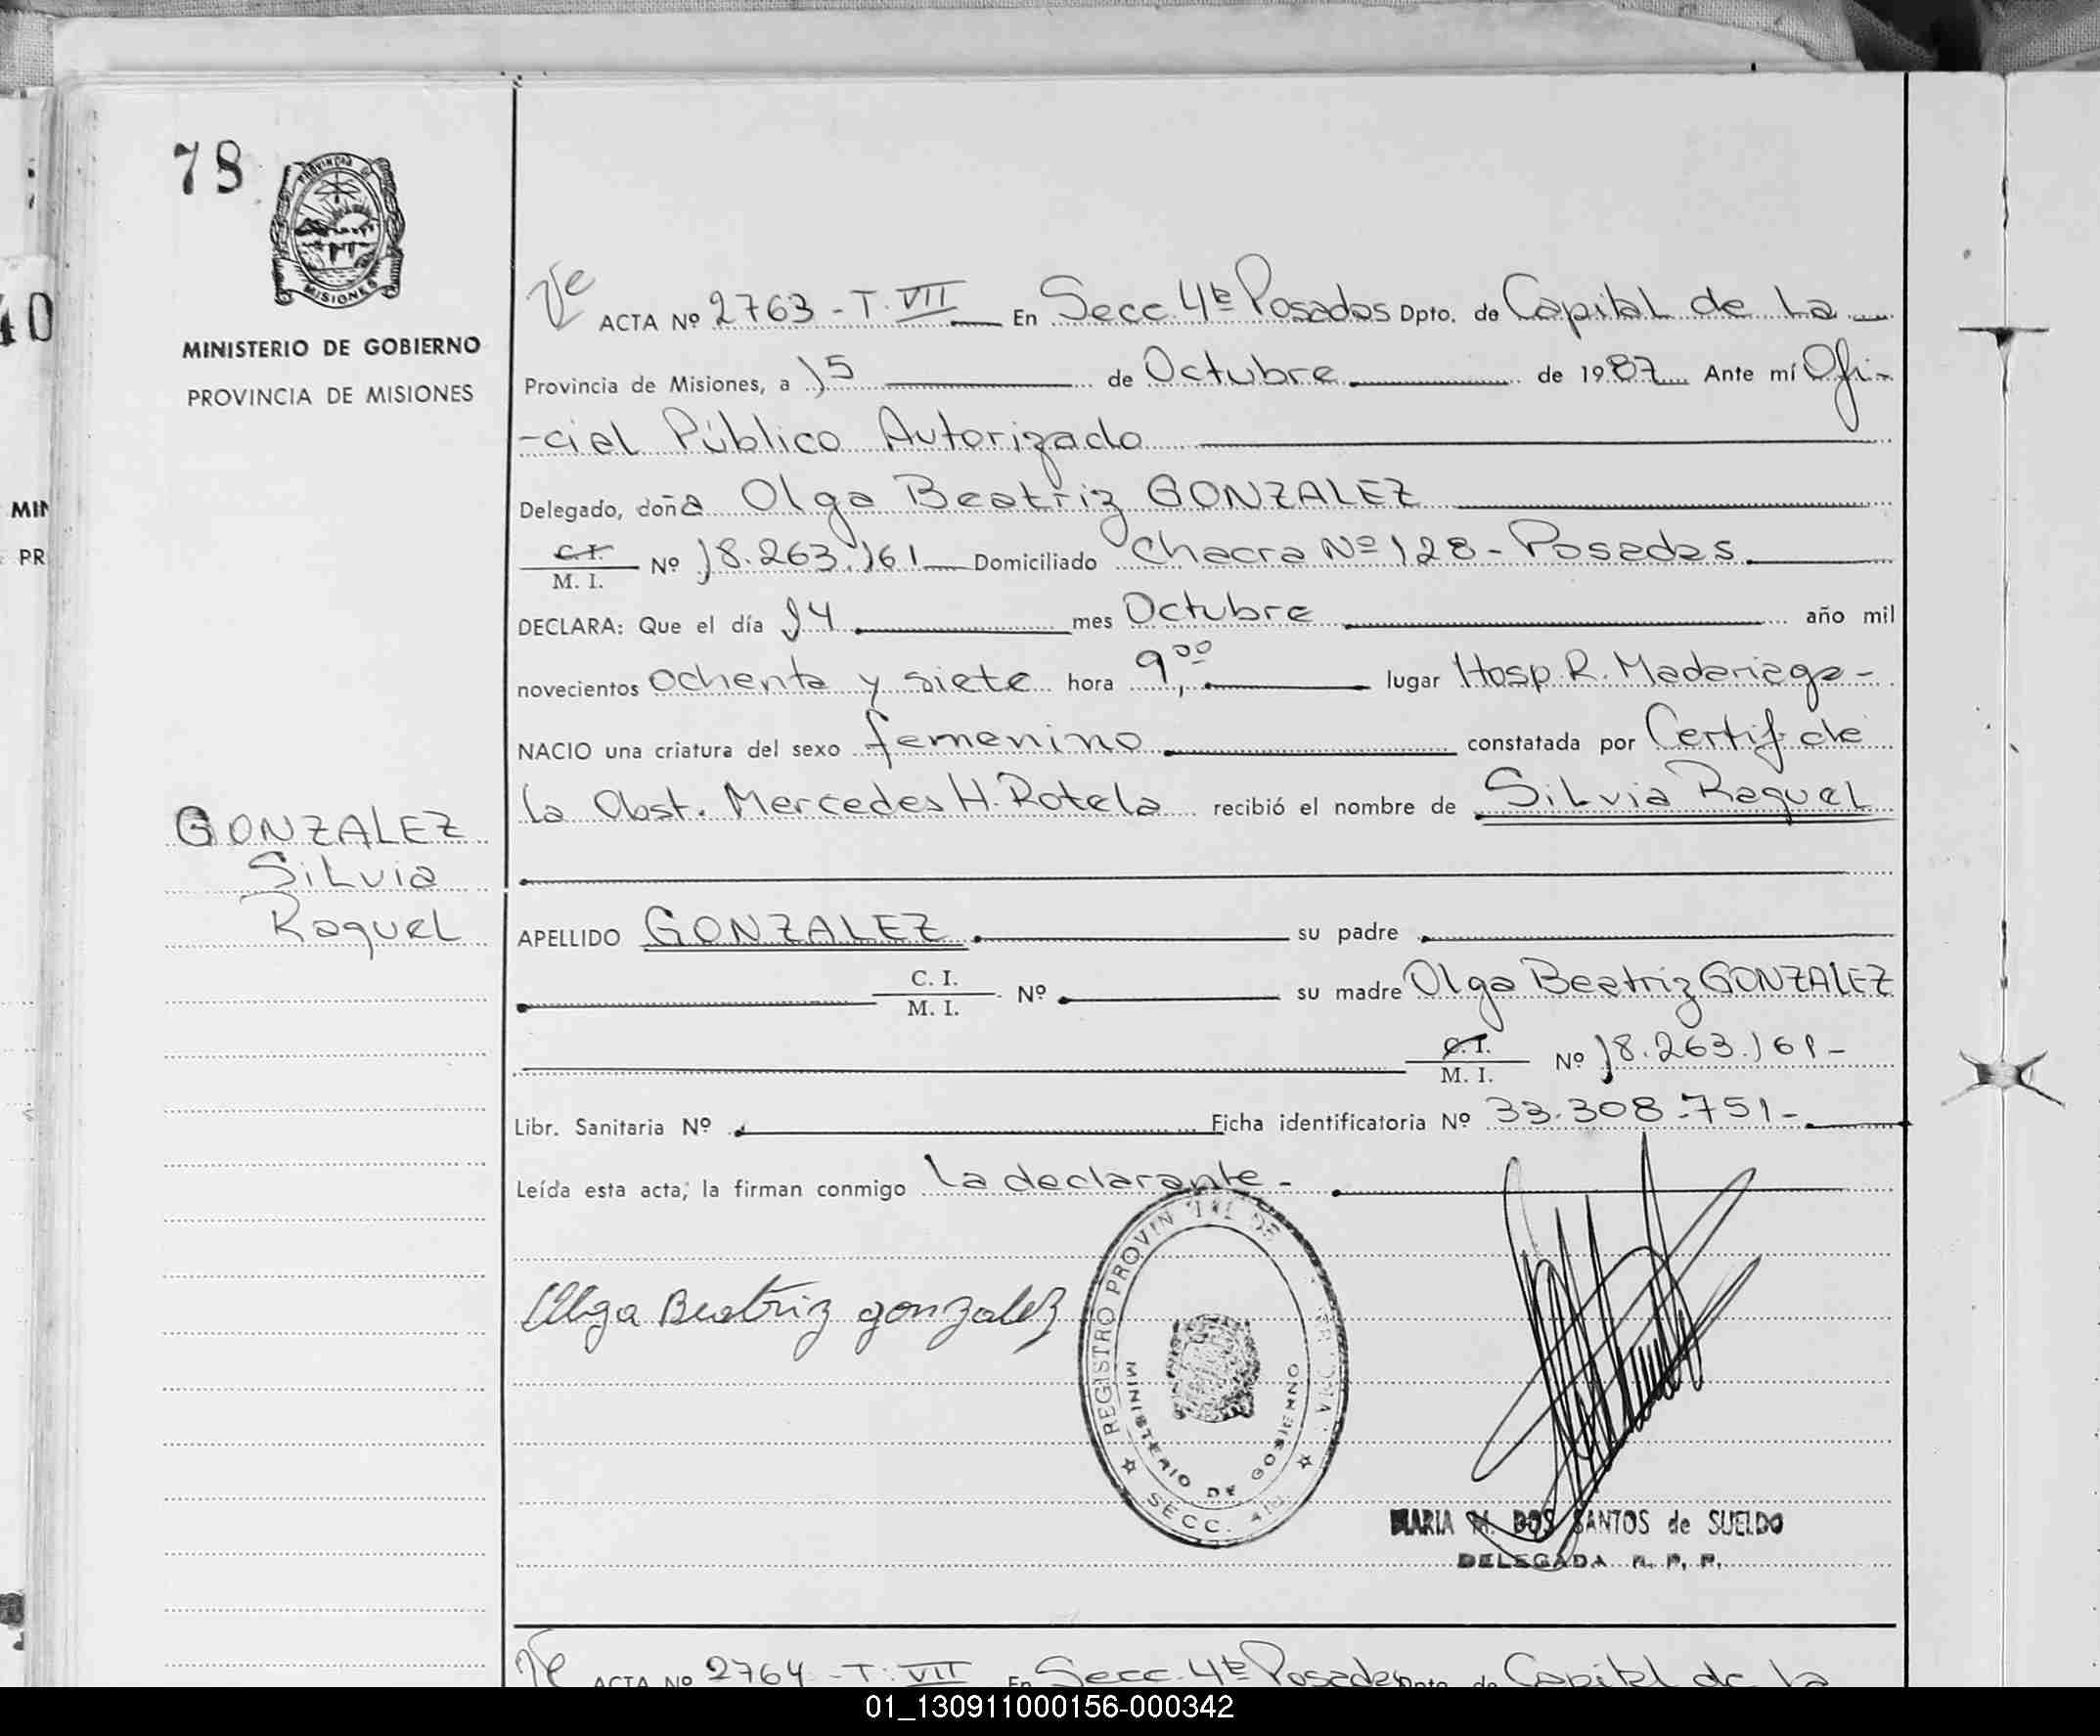 78
PROVINCIA DE
MISIONES
MINISTERIO DE GOBIERNO
PROVINCIA DE MISIONES
40
MIN
PR
GONZALEZ
Silvia
Raquel
Ve ACTA Nº 2763 - T. VII En Secc. 4ta Posadas Dpto. de Capital de la
Provincia de Misiones, a 15 de Octubre de 1987 Ante mí Ofi-
-cial Público Autorizado
Delegado, doña Olga Beatriz GONZALEZ
C.I.
M. I. Nº 18.263.161 Domiciliado Chacra Nº 128 - Posadas
DECLARA: Que el día 14 mes Octubre año mil
novecientos ochenta y siete hora 9,00 lugar Hosp. R. Madariaga -
NACIO una criatura del sexo femenino constatada por Certif. de
la Obst. Mercedes H. Rotela recibió el nombre de Silvia Raquel
APELLIDO GONZALEZ su padre
C. I.
M. I. Nº su madre Olga Beatriz GONZALEZ
C. I.
M. I. Nº 18.263.161 -
Libr. Sanitaria Nº Ficha identificatoria Nº 33.308.751 -
Leída esta acta; la firman conmigo la declarante -
Olga Beatriz gonzalez
REGISTRO PROVINCIAL DE
MINISTERIO DE GOBIERNO
SECC. 4ta.
MARIA M. DOS SANTOS de SUELDO
DELEGADA R. P. P.
Ve ACTA Nº 2764 - T. VII En Secc. 4ta Posadas Dpto. de Capital de la
01_130911000156-000342